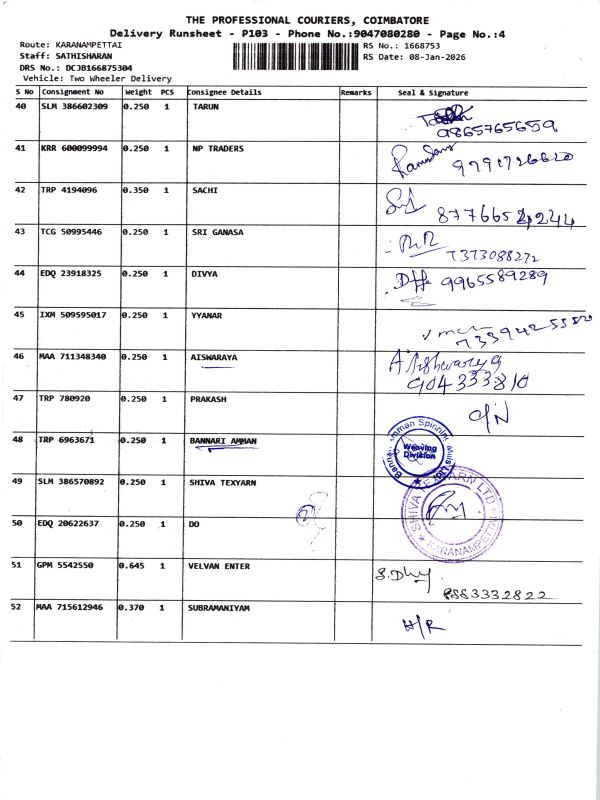 THE PROFESSIONAL COURIERS, COIMBATORE
Delivery Runsheet - P103 - Phone No.:9047080280 - Page No.:4
Route: KARANAMPETTAI RS No.: 1668753
Staff: SATHISHARAN RS Date: 08-Jan-2026
DRS No.: DCJB166875304
Vehicle: Two Wheeler Delivery
S No Consignment No Weight PCS Consignee Details Remarks Seal & Signature
40 SLM 386602309 0.250 1 TARUN
9865765659
41 KRR 600099994 0.250 1 NP TRADERS
9791726620
42 TRP 4194096 0.350 1 SACHI
43 TCG 50995446 0.250 1 SRI GANASA
7373088272
44 EDQ 23918325 0.250 1 DIVYA
9965589289
45 IXM 509595017 0.250 1 YYANAR
46 MAA 711348340 0.250 1 AISWARAYA
Aishwarya
904333810
47 TRP 780920 0.250 1 PRAKASH
O/N
48 TRP 6963671 0.250 1 BANNARI AMMAN
Bannari Amman Spinning Mills
Weaving
Division
49 SLM 386570892 0.250 1 SHIVA TEXYARN
SHIVA TEXYARN LTD
KARANAMPETTAI
50 EDQ 20622637 0.250 1 DO
51 GPM 5542550 0.645 1 VELVAN ENTER
S. Dhy
8883332822
52 MAA 715612946 0.370 1 SUBRAMANIYAM
H/R